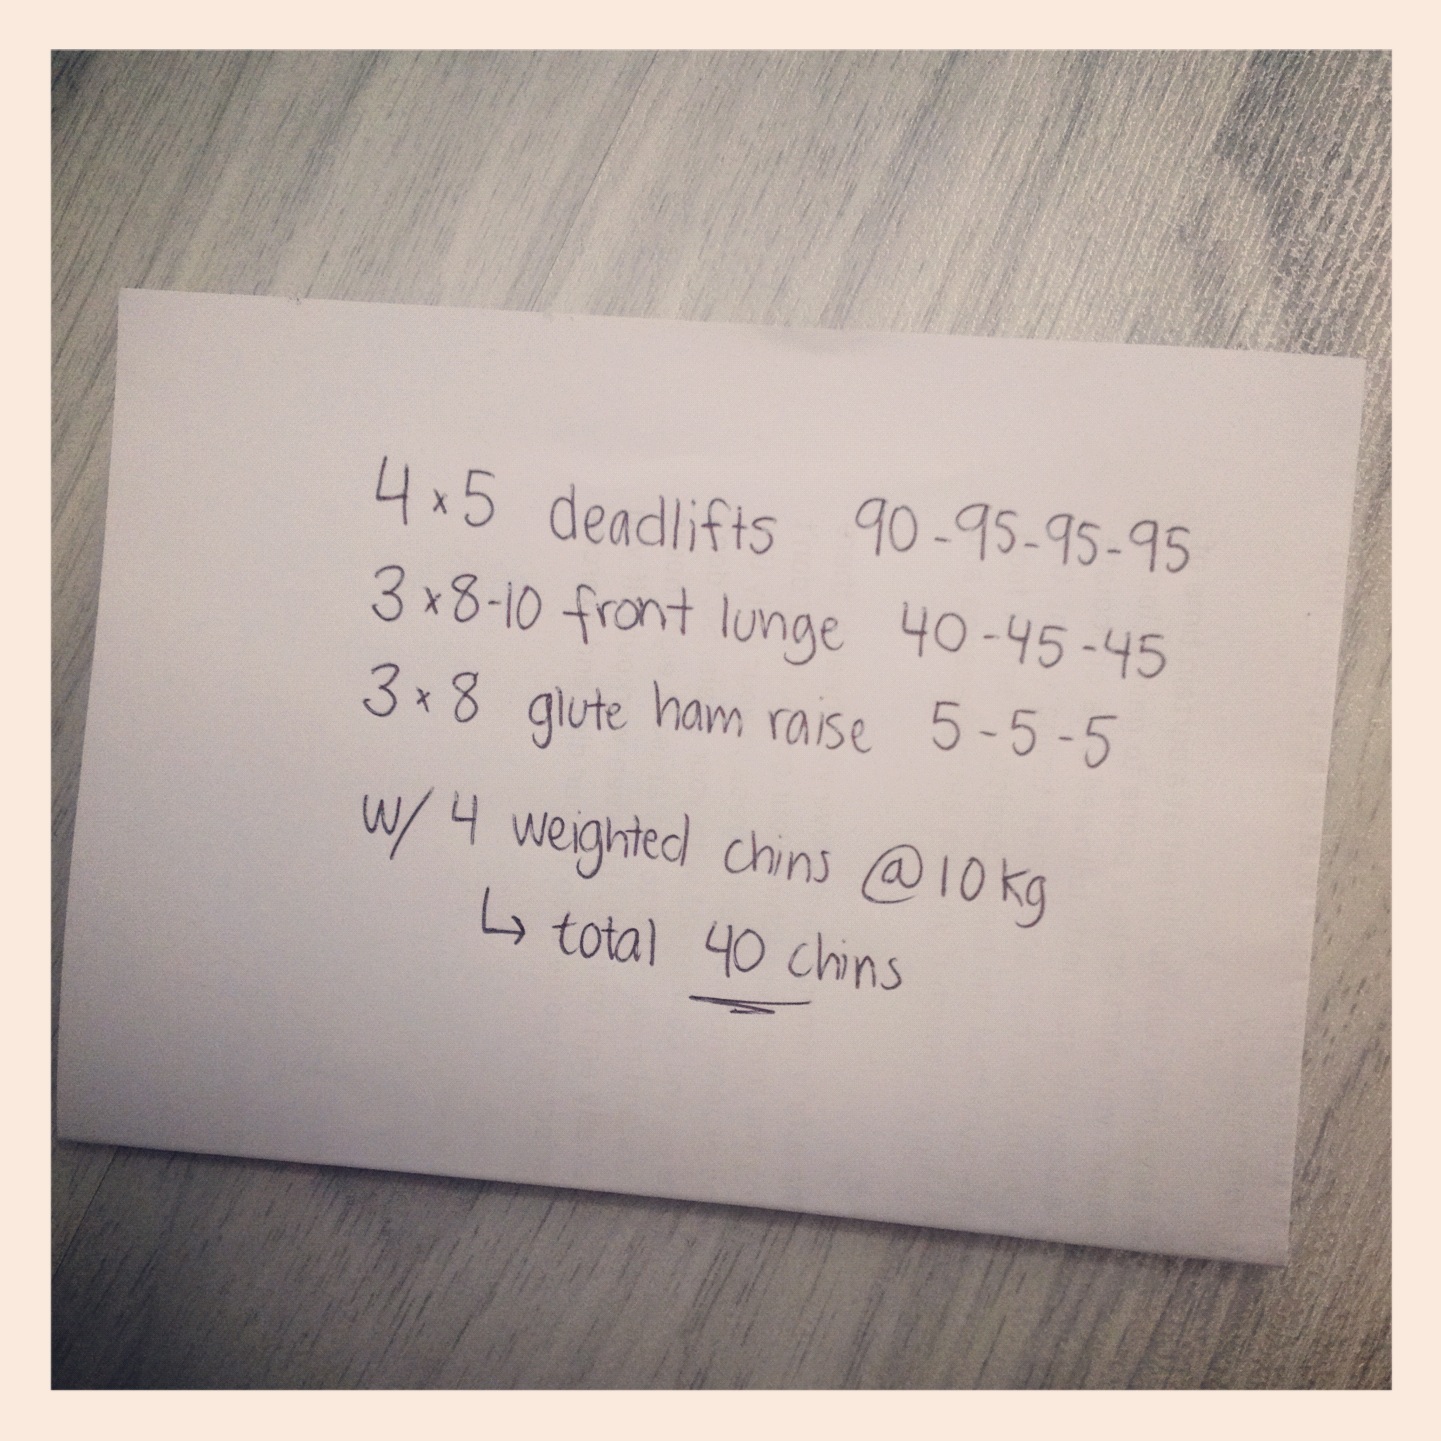 4 x 5 deadlifts 90-95-95-95
3 x 8-10 front lunge 40-45-45
3 x 8 glute ham raise 5-5-5
w/ 4 weighted chins @ 10 kg
↳ total 40 chins